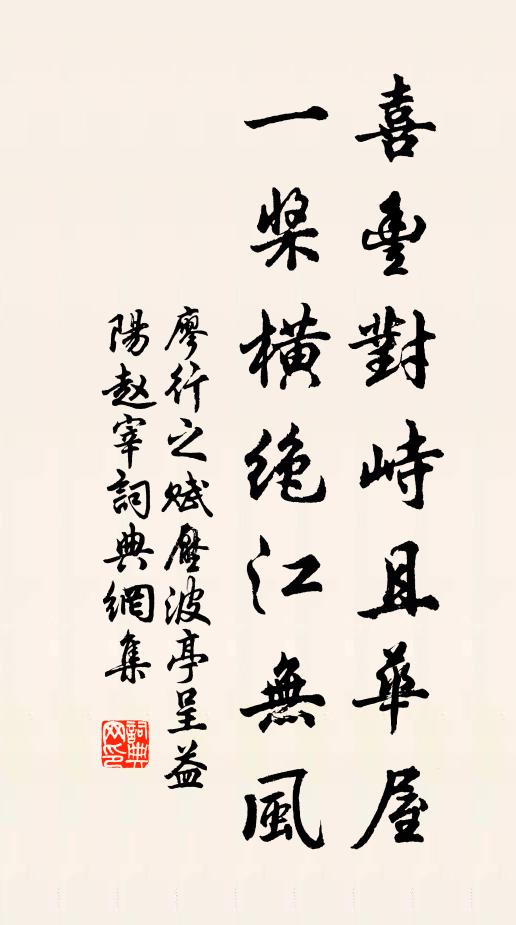 喜豐對峙且華屋
一槳橫絶江無風
廖行之賦壓波亭呈益
陽趙宰詞典網集
詞典
网印